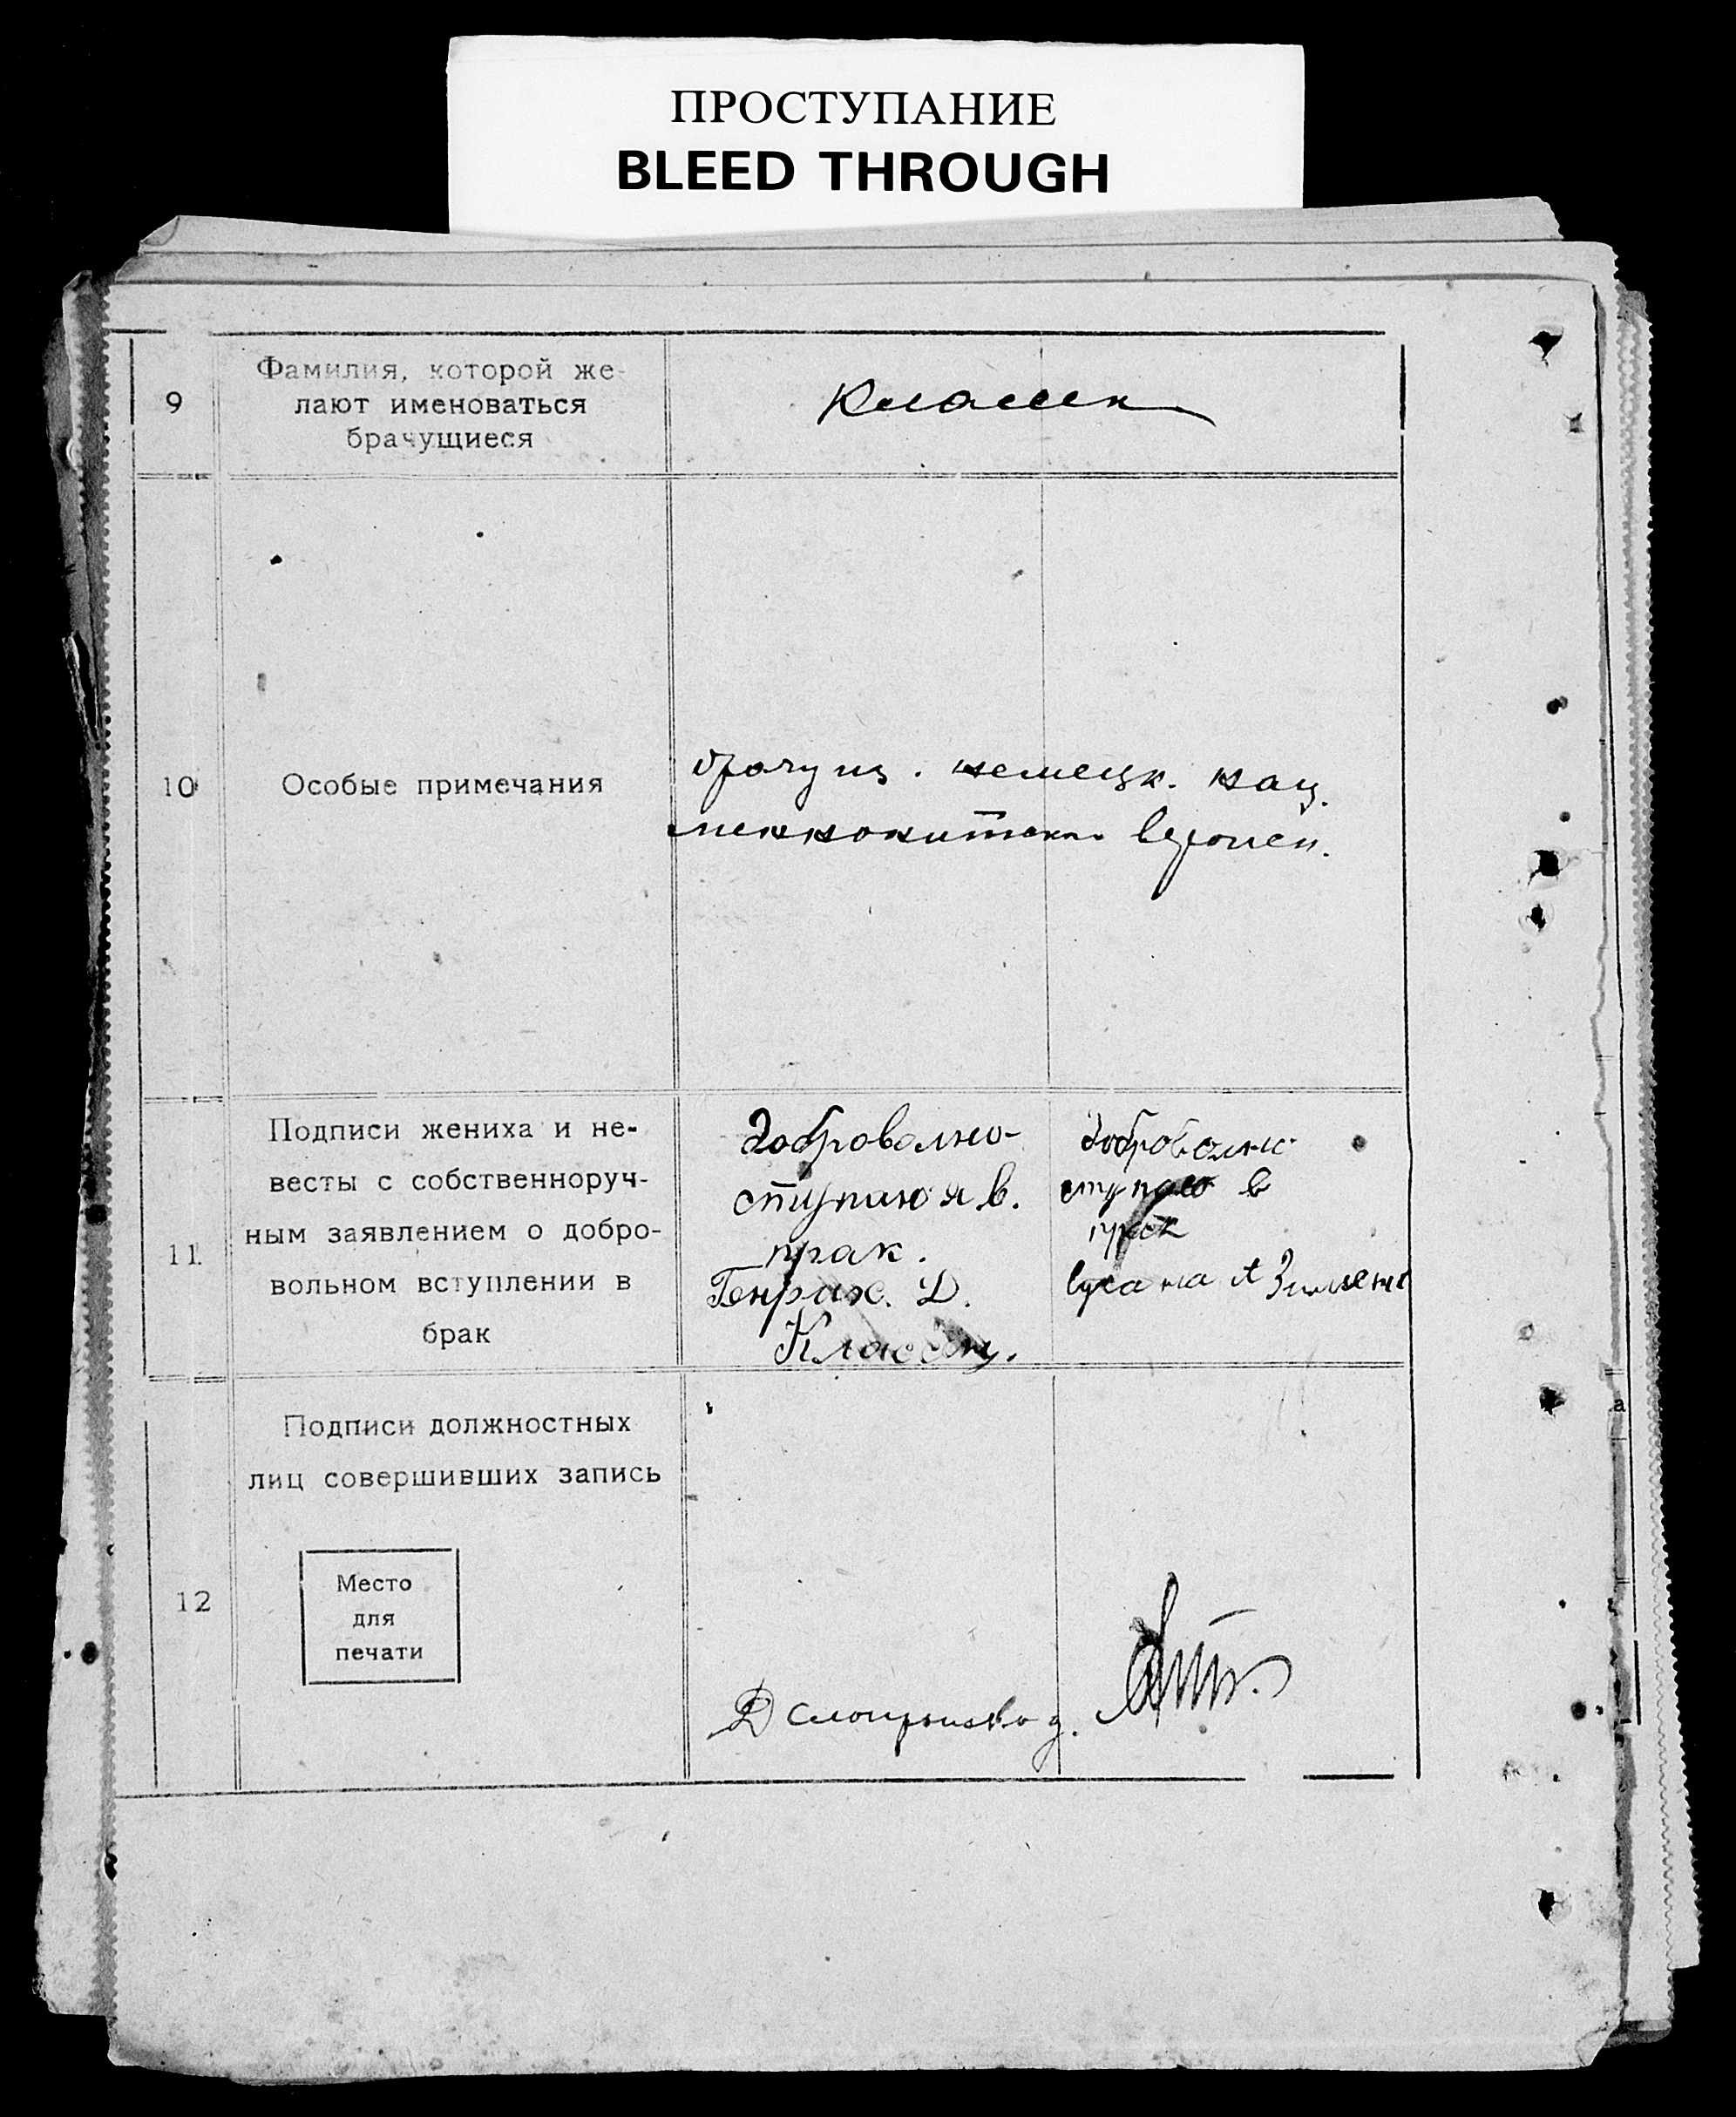 ПРОСТУПАНИЕ
BLEED THROUGH
9
Фамилия, которой же-
лают именоваться
брачущиеся
Классен
10
Особые примечания
брачущ. немецк. нац.
меннонитск. вероисп.
11
Подписи жениха и не-
весты с собственноруч-
ным заявлением о добро-
вольном вступлении в
брак
Доброволно-
ступаю я в.
прак.
Генрих. Д.
Классен.
доброволно
ступаю в
прак
сусана А
12
Подписи должностных
лиц совершивших запись
Место
для
печати
а